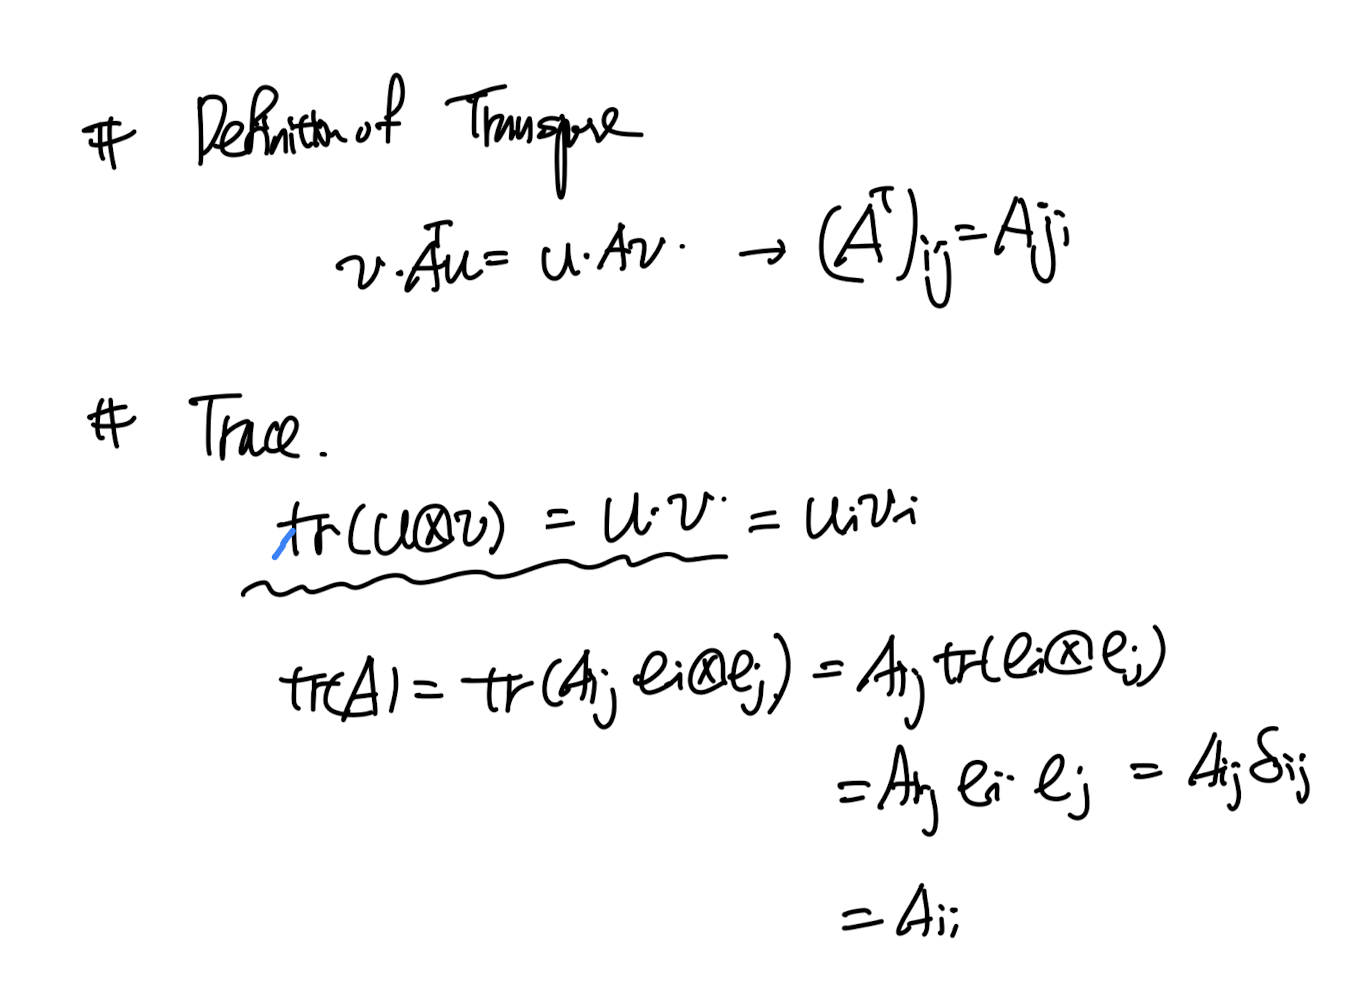 # Definition of Transpose
v · Aᵀu = u · Av . → (Aᵀ)ij = Aji
# Trace.
tr(u⊗v) = u · v . = uivi
tr(A) = tr(Aij ei⊗ej) = Aij tr(ei⊗ej)
= Aij ei · ej = Aij δij
= Aii